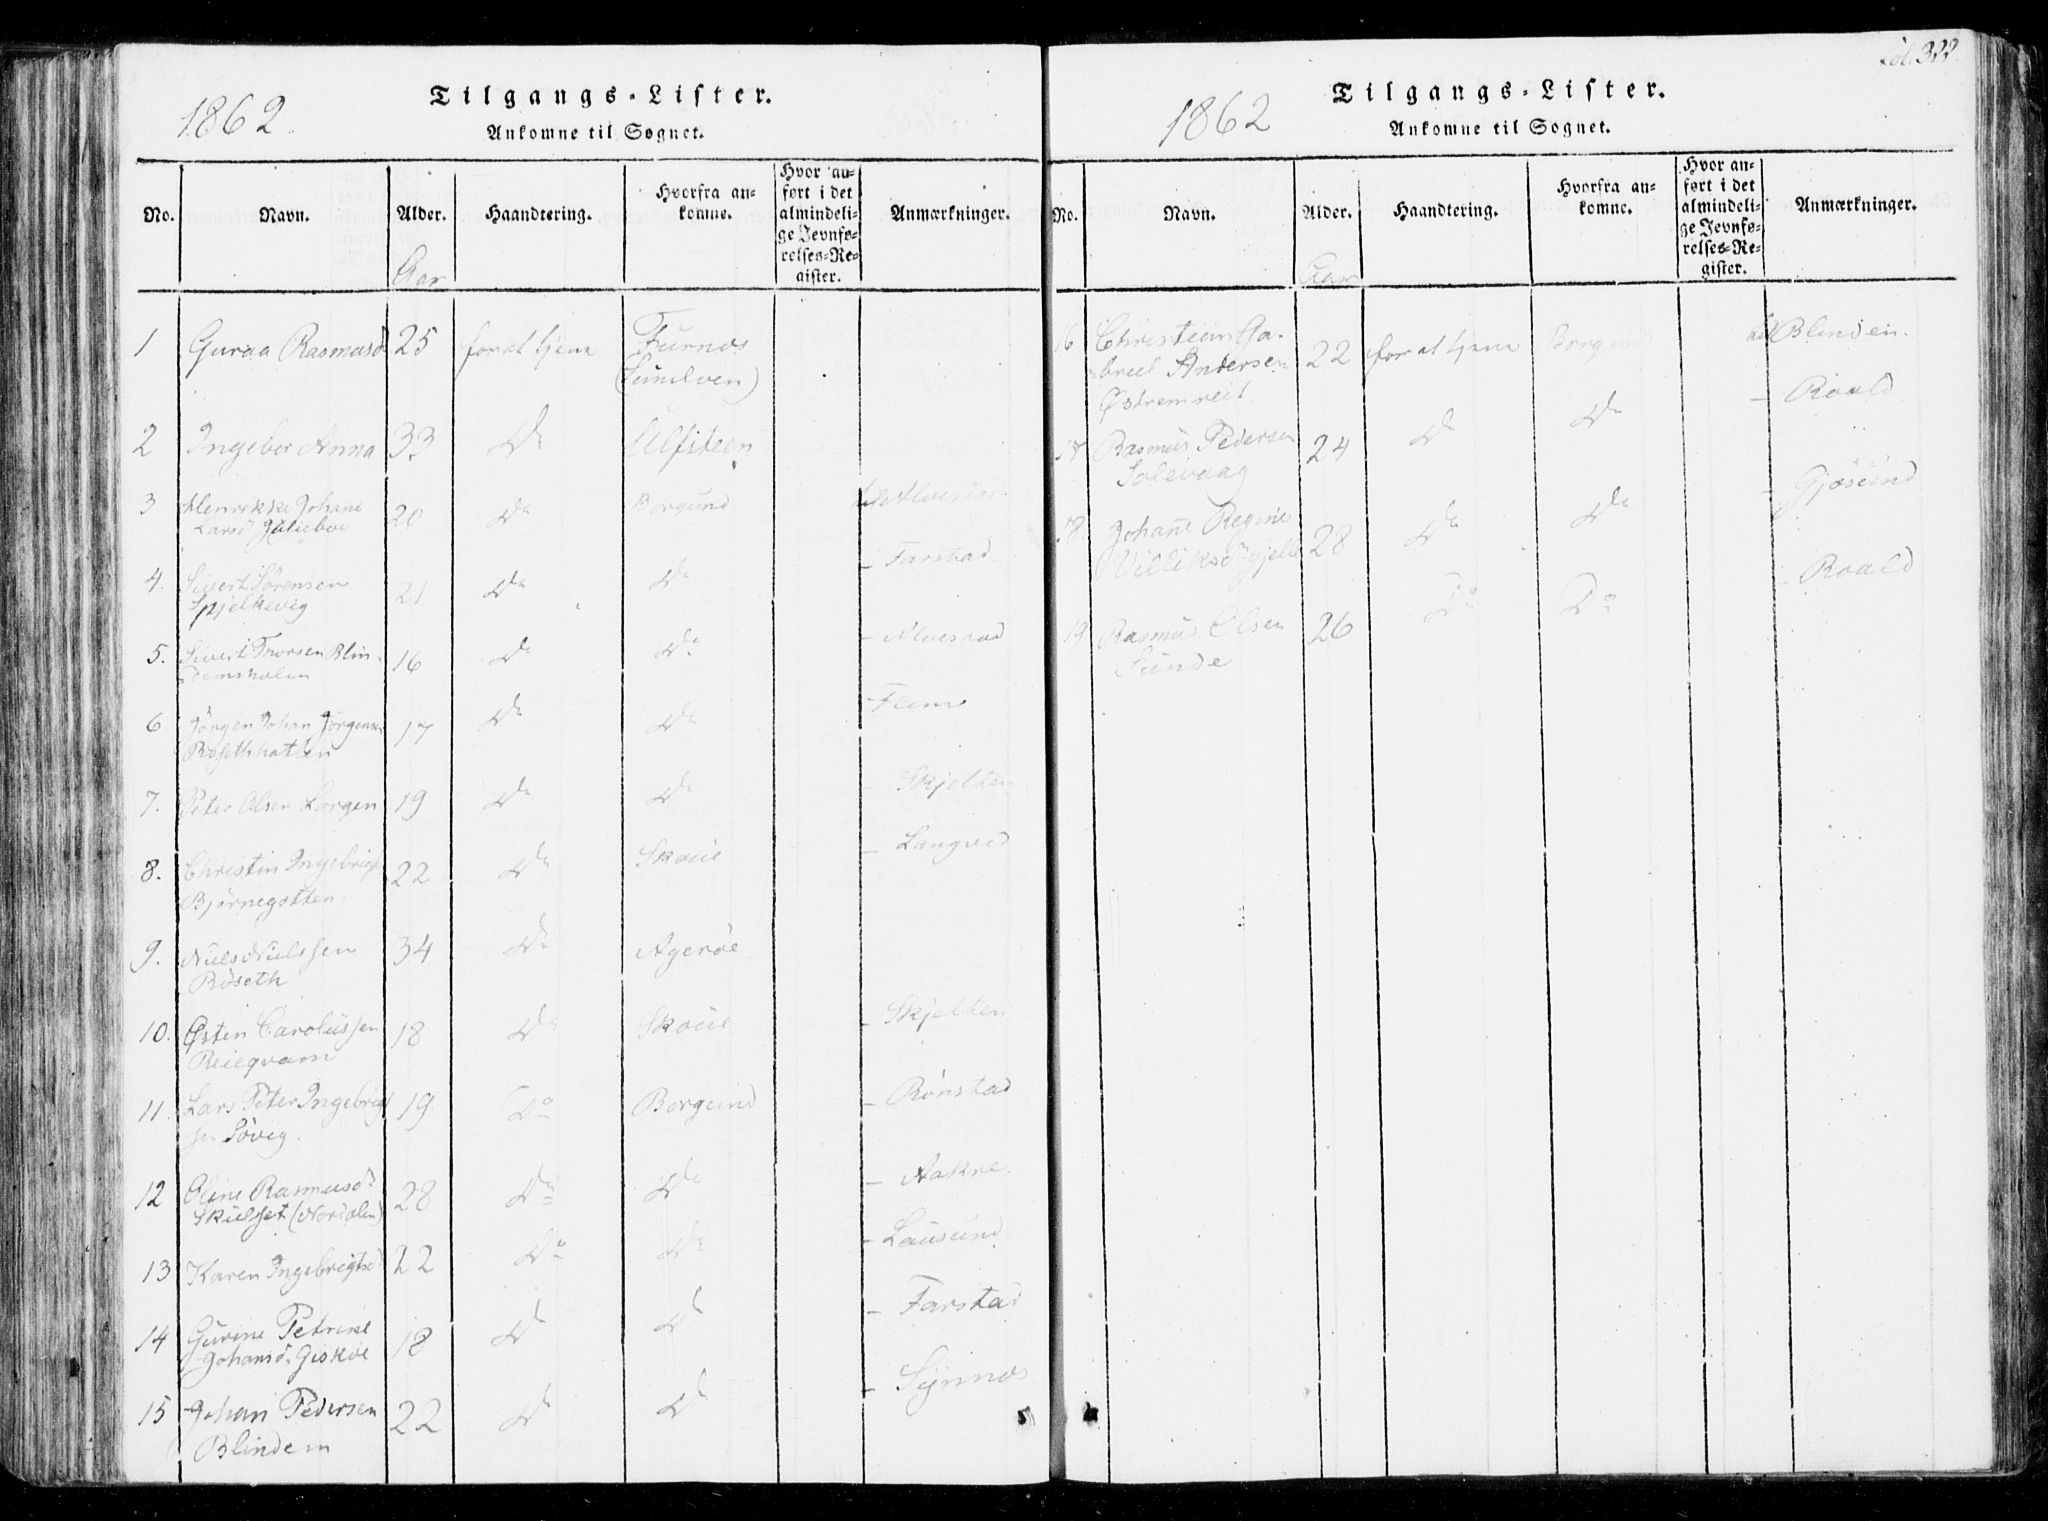 1862
Tilgangs-Lister.
Ankomne til Sognet.
No.
Navn.
Alder.
Haandtering.
Hvorfra an-
komne.
Hvor an-
ført i det
almindeli-
ge Jevnfø-
relses-Re-
gister.
Anmærkninger.
Aar
1 Guraa Rasmusd 25 for at tjene Furnæs
(Sundven)
2 Ingebor Anna 33 Do Ulfsteen
3 Henrikke Johane 20 Do Borgund
Larsd
til
4. Sivert Sørensen 21 Do Do – Farstad
Spjelkevig
5. Sivert Thorsen Blin- 16 Do Do –
demsholen
6 Jørgen Johan Jørgensen 17 Do Do – Flem
7. Peter Olsen Lorgen 19 Do Do – Skjelten
8. Christin Ingebrigt 22 Do Skoue – Langved
Bjørnegotten
9. Niels Nielssen 34 Do Agerøe
Røseth
10. Østen Carolussen 18 Do Skoue – Skjelten
11. Lars Peter Ingebrigt 19 Do Borgund – Rønstad
sen Søvig.
12 Oline Rasmusd 28 Do Do – Aakre.
(Nordalen)
13 Karen Ingebrigtsd 22 Do Do – Lausund
14 Gurine Petrine 18 Do Do – Farstad
Johansd. Giskøe
15 Johan Pedersen 22 Do Do – Synnæs
Blindem
fol. 322
1862
Tilgangs-Lister.
Ankomne til Sognet.
No.
Navn.
Alder.
Haandtering.
Hvorfra an-
komne.
Hvor an-
ført i det
almindeli-
ge Jevnfø-
relses-Re-
gister.
Anmærkninger.
Aar
16 Christian Ga- 22 for at tjene Borgund til Blindem.
briel Andersen
Østremreit
17 Rasmus Pedersen 24 Do Do – Roald
Solevaag
18. Johane Regine 28 Do Do – Gjøsund
19 Rasmus Olsen 26 Do Do – Roald
Sunde